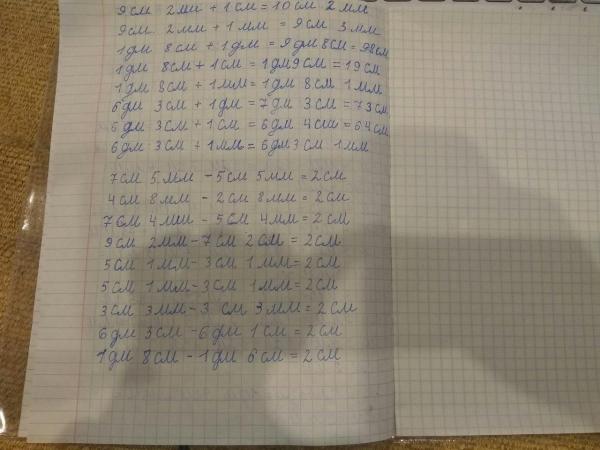 9см 2мм + 1см = 10см 2мм
9см 2мм + 1мм = 9см 3мм
1дм 8см + 1дм = 9дм 8см = 98см
1дм 8см + 1см = 1дм 9см = 19см
1дм 8см + 1мм = 1дм 8см 1мм
6дм 3см + 1дм = 7дм 3см = 73см
6дм 3см + 1см = 6дм 4см = 64см
6дм 3см + 1мм = 6дм 3см 1мм
7см 5мм - 5см 5мм = 2см
4см 8мм - 2см 8мм = 2см
7см 4мм - 5см 4мм = 2см
9см 2мм - 7см 2см = 2см
5см 1мм - 3см 1мм = 2см
5см 1мм - 3см 1мм = 2см
3см 3мм - 3см 3мм = 2см
6дм 3см - 6дм 1см = 2см
1дм 8см - 1дм 6см = 2см